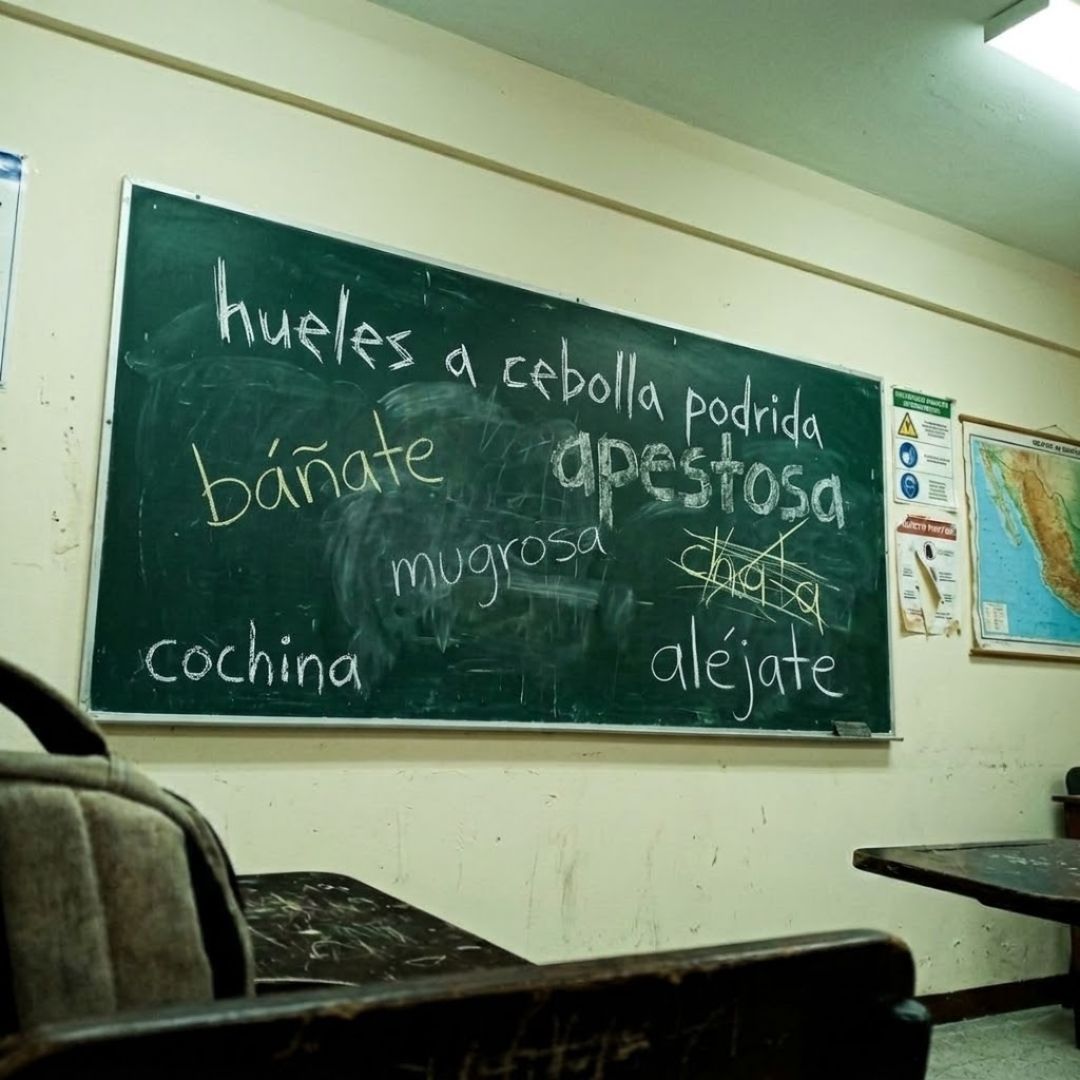 hueles a cebolla podrida
báñate
apestosa
mugrosa
cochina
aléjate